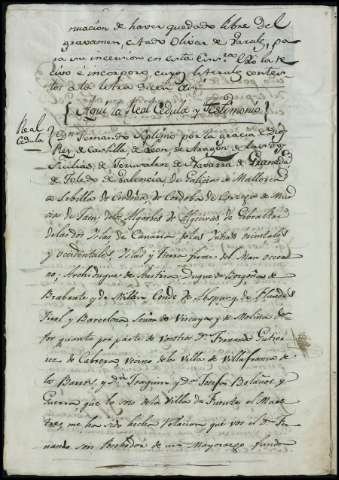 nuacion de haver quedado libre del
gravamen, Pedro Oliver de Paral, pa
ra su insercion en esta
e incorporo, cuyo literal conte
a la letra dicen asi
Aqui la Real Cedula y Testimonio
Real
Cedula
Dn. Fernando Septimo por la gracia de Dios
Rey de Castilla de Leon, de Aragon de las dos
Sicilias, de Jerusalen de Navarra de Granada
de Toledo de Valencia, de Galicia de Mallorca
de Sebilla de Cerdeña, de Cordoba de Corcega de Mur
cia de Jaen de los Algarbes de Algeciras de Gibraltar
de las dos Islas de Canaria de las Yndias orientales
y occidentales, Islas y tierra firme del Mar occea
no, Archiduque de Austria Duque de Borgoña de
Brabante y de Milan, Conde de Abspurg, de Flandes
Tirol y Barcelona Señor de Vizcaya y de Molina &c
Por quanto por parte de vosotros Dn. Fernando Gutier
rez de Cabrera Vecino de la Villa de Villafranca de
los Barros, y Da. Joaquina y Da. Josefa Bolaños y
Guerra que lo son de la Villa de Fuente el Maes
tre, me ha sido hecha relacion que vos el Dn. Fer
nando son Poseedor de un Mayorazgo funda